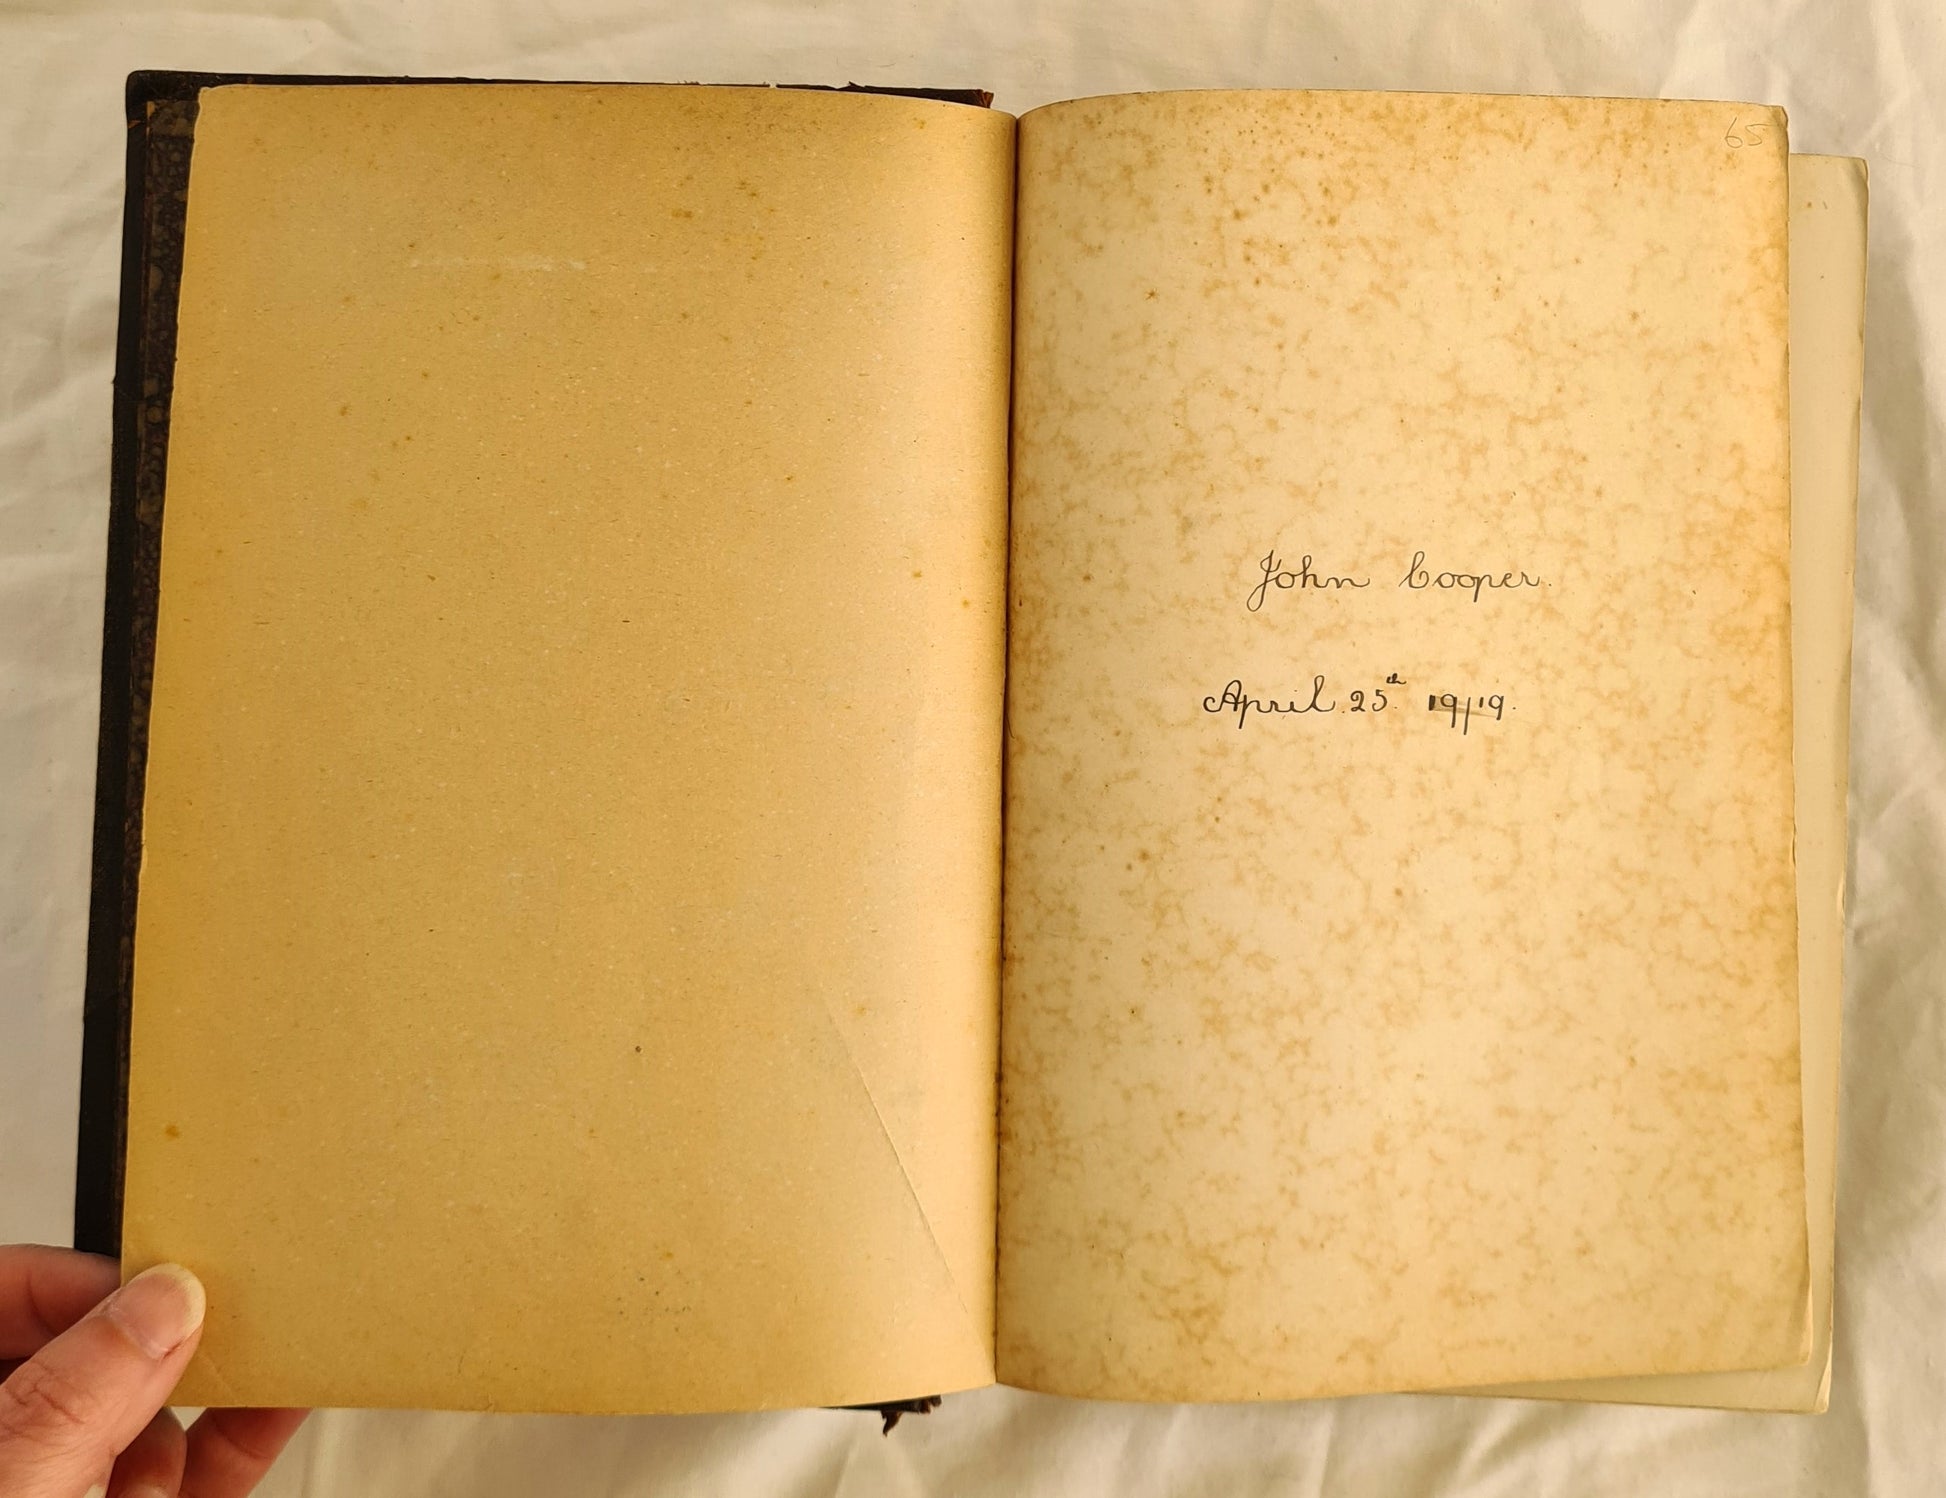 65
John Cooper.
April 25th 19/19.